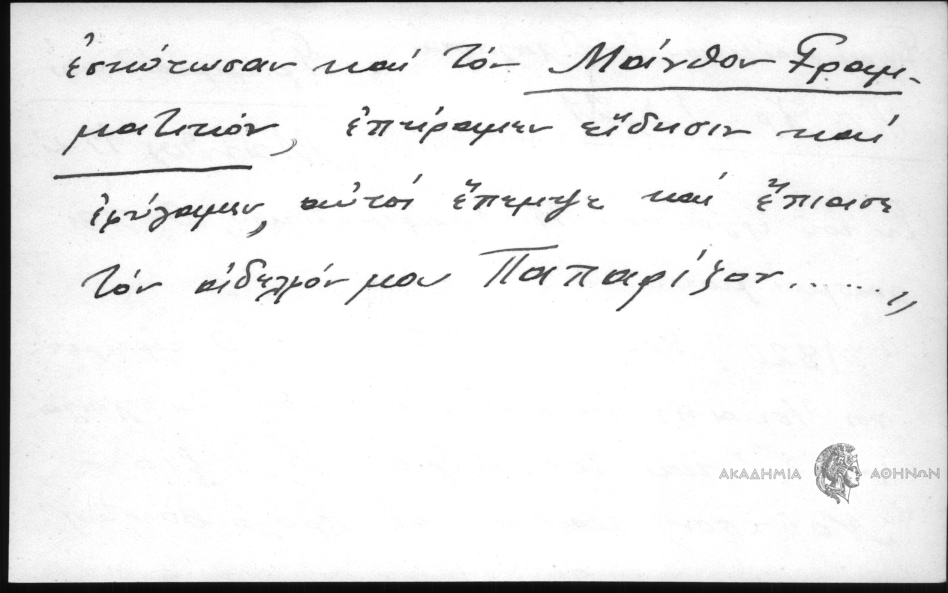 ἐσκότωσαν καί τόν Μάνθον Γραμ-
ματικόν, ἐπήραμεν εἴδησιν καί
ἐφύγαμεν, αὐτοί ἔπεμψε καί ἔπιασε
τόν ἀδελφόν μου Παπαρίζον......,,
ΑΚΑΔΗΜΙΑ ΑΘΗΝΩΝ